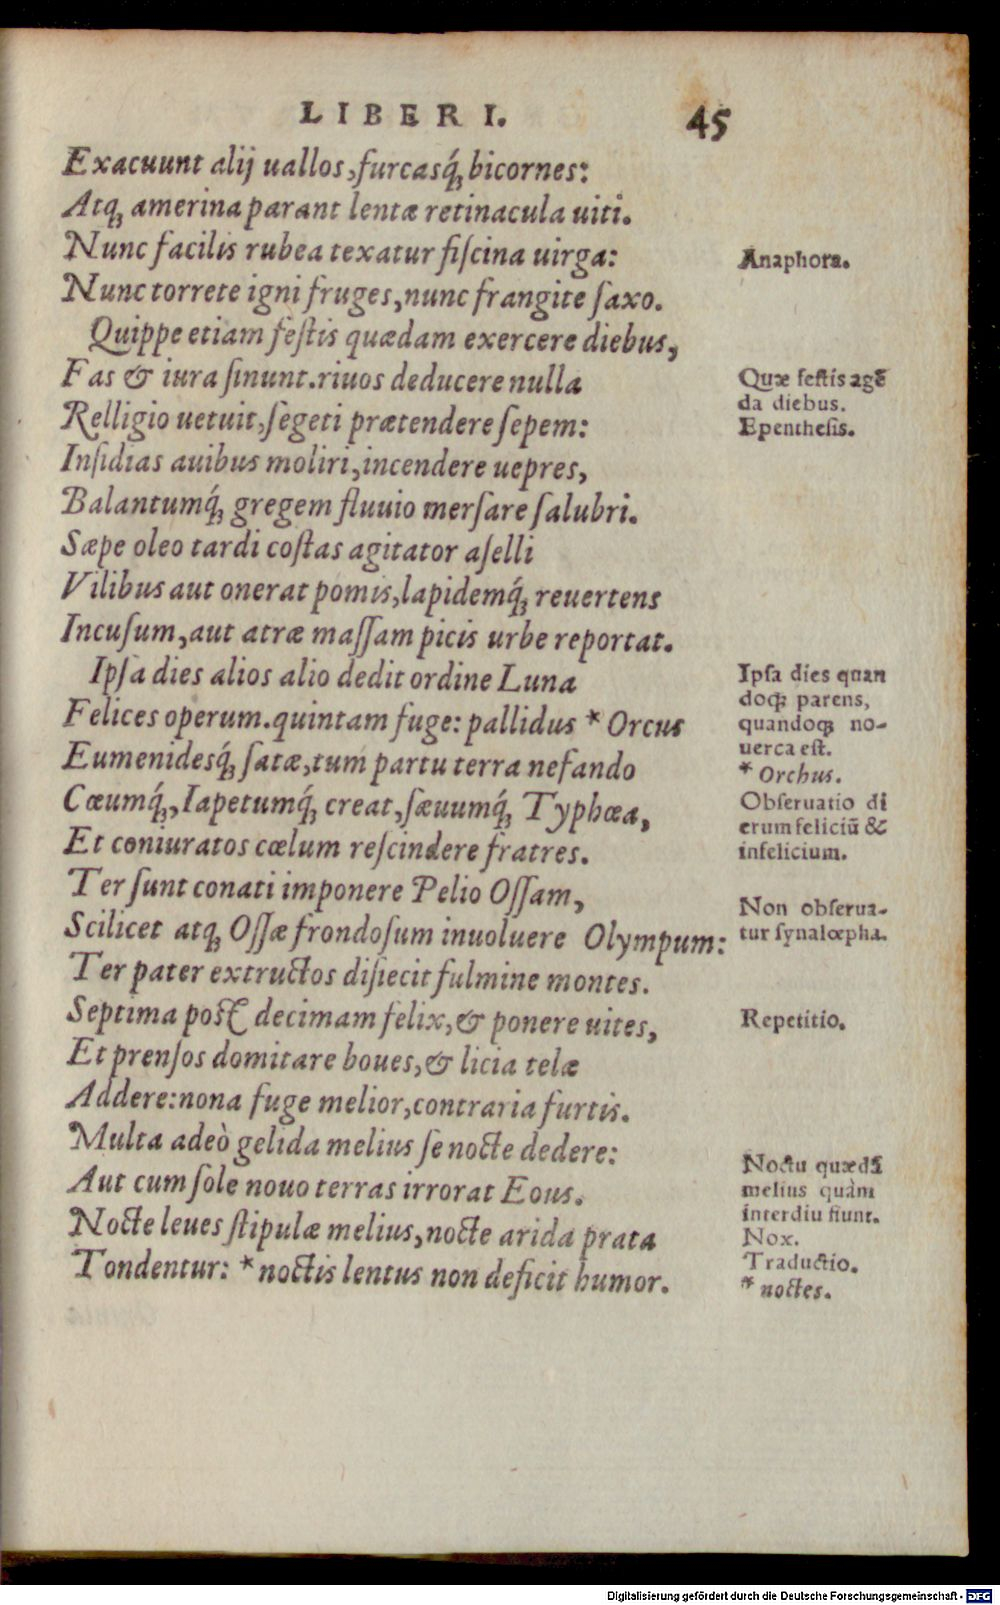 LIBER I.
45
Exacuunt alij uallos, furcasq́ꝫ bicornes:
Atqꝫ amerina parant lentæ retinacula uiti.
Nunc facilis rubea texatur fiſcina uirga:
Anaphora.
Nunc torrete igni fruges, nunc frangite ſaxo.
Quippe etiam feſtis quædam exercere diebus,
Fas & iura ſinunt. riuos deducere nulla
Quæ feſtis agē
da diebus.
Relligio uetuit, ſegeti prætendere ſepem:
Epentheſis.
Inſidias auibus moliri, incendere uepres,
Balantumq́ꝫ gregem fluuio merſare ſalubri.
Sæpe oleo tardi coſtas agitator aſelli
Vilibus aut onerat pomis, lapidemq́ꝫ reuertens
Incuſum, aut atræ maſſam picis urbe reportat.
Ipſa dies alios alio dedit ordine Luna
Ipſa dies quan
doqꝫ parens,
Felices operum. quintam fuge: pallidus * Orcus
quandoqꝫ no-
uerca eſt.
Eumenidesq́ꝫ ſatæ, tum partu terra nefando
* Orchus.
Cœumq́ꝫ, Iapetumq́ꝫ creat, ſæuumq́ꝫ Typhœa,
Obſeruatio di
erum feliciū &
Et coniuratos cœlum reſcindere fratres.
infelicium.
Ter ſunt conati imponere Pelio Oſſam,
Non obſerua-
Scilicet atqꝫ Oſſæ frondoſum inuoluere Olympum:
tur ſynalœpha.
Ter pater extructos diſiecit fulmine montes.
Septima poſt decimam felix, & ponere uites,
Repetitio.
Et prenſos domitare boues, & licia telæ
Addere: nona fuge melior, contraria furtis.
Multa adeò gelida melius ſe nocte dedere:
Noctu quædā
Aut cum ſole nouo terras irrorat Eous.
melius quàm
interdiu fiunt.
Nocte leues ſtipulæ melius, nocte arida prata
Nox.
Traductio.
Tondentur: * noctis lentus non deficit humor.
* noctes.
Digitalisierung gefördert durch die Deutsche Forschungsgemeinschaft - DFG